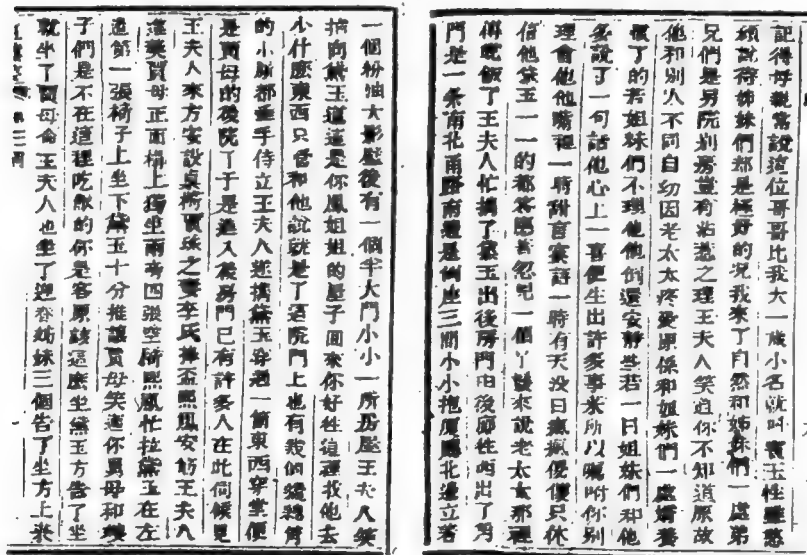 記得母親常說這位哥哥比我大一歲小名就叫寶玉性雖憨
頑說待姊妹們都是極好的況我來了自然和姊妹們一處弟
兄們是另院別房豈有沾惹之理王夫人笑道你不知道原故
他和別人不同自幼因老太太疼愛原係和姐妹們一處嬌養
慣了的若姐妹們不理他他倒還安靜些若一日姐妹們和他
多說了一句話他心上一喜便生出許多事來所以囑咐你別
理會他他嘴裡一時甜言蜜語一時有天沒日瘋瘋傻傻只休
信他黛玉一一的都答應着忽見一個丫鬟來說老太太那裡
傳晚飯了王夫人忙携了黛玉出後房門由後廊往西出了角
門是一條南北甬路南邊是倒座三間小小抱厦廳北邊立着
一個粉油大影壁後有一個半大門小小一所房屋王夫人笑
指向黛玉道這是你鳳姐姐的屋子回來你好往這裡找他去
少什麼東西只管和他說就是了這院門上也有幾個纔總角
的小厮都垂手侍立王夫人遂携黛玉穿過一個東西穿堂便
是賈母的後院了于是進入後房門已有許多人在此伺候見
王夫人來方安設桌椅賈珠之妻李氏捧盃熙鳳安筯王夫人
進羹賈母正面榻上獨坐兩旁四張空椅熙鳳忙拉黛玉在左
邊第一張椅子上坐下黛玉十分推讓賈母笑道你舅母和嫂
子們是不在這裡吃飯的你是客原該這麼坐黛玉方告了坐
就坐了賈母命王夫人也坐了迎春姊妹三個告了坐方上來